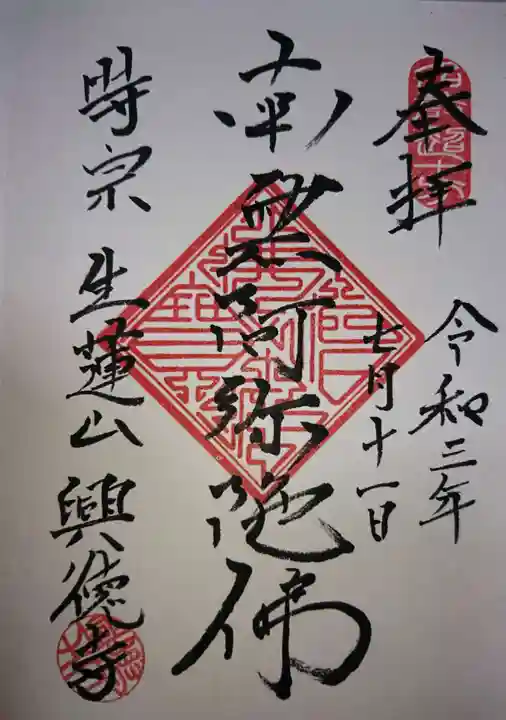 奉拝
令和三年
七月十一日
南無阿弥陀佛
時宗 生蓮山 興徳寺